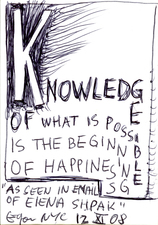 KNOWLEDGE
OF WHAT IS POSSIBLE
IS THE BEGINNING
OF HAPPINESS
"AS SEEN IN EMAIL
OF ELENA SHPAK"
NYC 12 XI 08